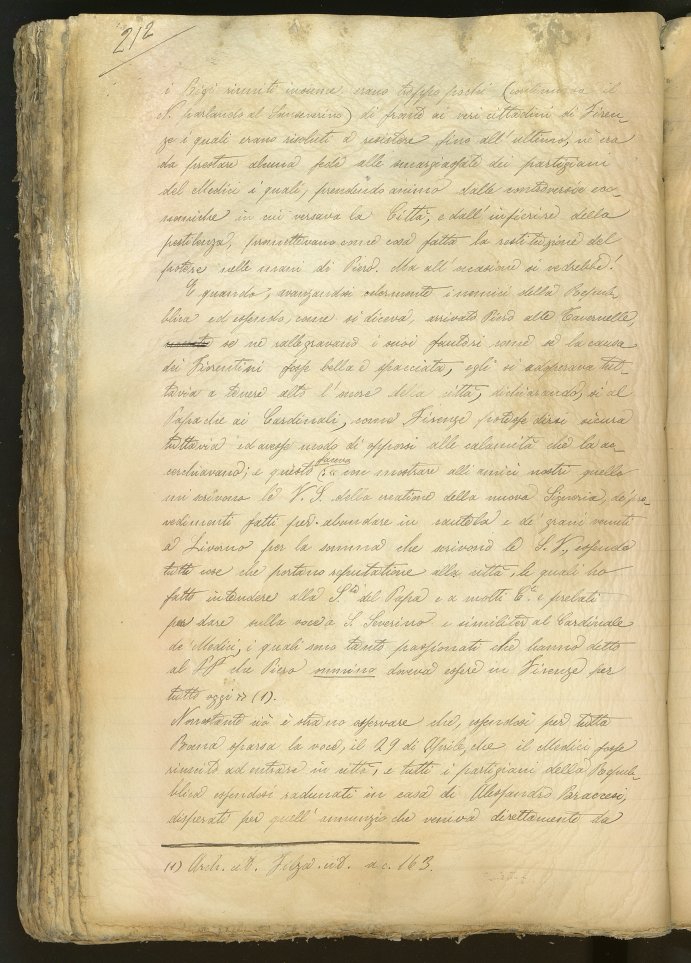 212
i Bigi riuniti insieme erano troppo pochi (continuava il
N. parlando al Sanseverino) di fronte ai veri cittadini di Firen-
ze i quali erano risoluti a resistere fino all'ultimo, nè era
da prestare alcuna fede alle smargiassate dei partigiani
del Medici i quali, prendendo animo dalle
in cui versava la Città, e dall'infierire della
pestilenza, promettevano come cosa fatta la restituzione del
potere nelle mani di Piero. Ma all'occasione si vedrebbe!
E quando, avanzandosi celermente i nemici della Repub-
blica ed essendo, come si diceva, arrivato Piero alle Tavernelle,
se ne rallegravano i suoi fautori come se la causa
dei Fiorentini fosse bella e spacciata, egli si adoperava tut-
tavia a tenere alto l'onore della città, dichiarando, sì al
Papa che ai Cardinali, come Firenze potesse dirsi sicura
tuttavia ed avesse modo di opporsi alle calamità che la ac-
cerchiavano; e questo faceva con mostrare alli amici nostri quello
mi scrivono le V. S. della creatione della nuova Signoria, de' pro-
vedimenti fatti per abundare in cautela e de' grani venuti
a Livorno per la somma che scrivono le S. V., essendo
tutte cose che portano reputatione alla città, le quali ho
fatto intendere alla S.tà del Papa e a molti C.li e prelati
per dare sulla voce a S. Severino e similiter al Cardinale
de' Medici, i quali sono tanto passionati che hanno detto
al P.P. che Piero omnino doveva essere in Firenze per
tutto oggi » (1).
Nonostante ciò è strano osservare che, essendosi per tutta
Roma sparsa la voce, il 29 di Aprile, che il Medici fosse
riuscito ad entrare in città, e tutti i partigiani della Repub-
blica essendosi radunati in casa di Alessandro Bracesi,
disperati per quell'annunzio che veniva direttamente da
(1) Arch. cit. Filza cit. a c. 163.